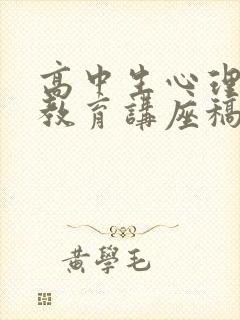 高中生心理
教育講座稿
黃學毛